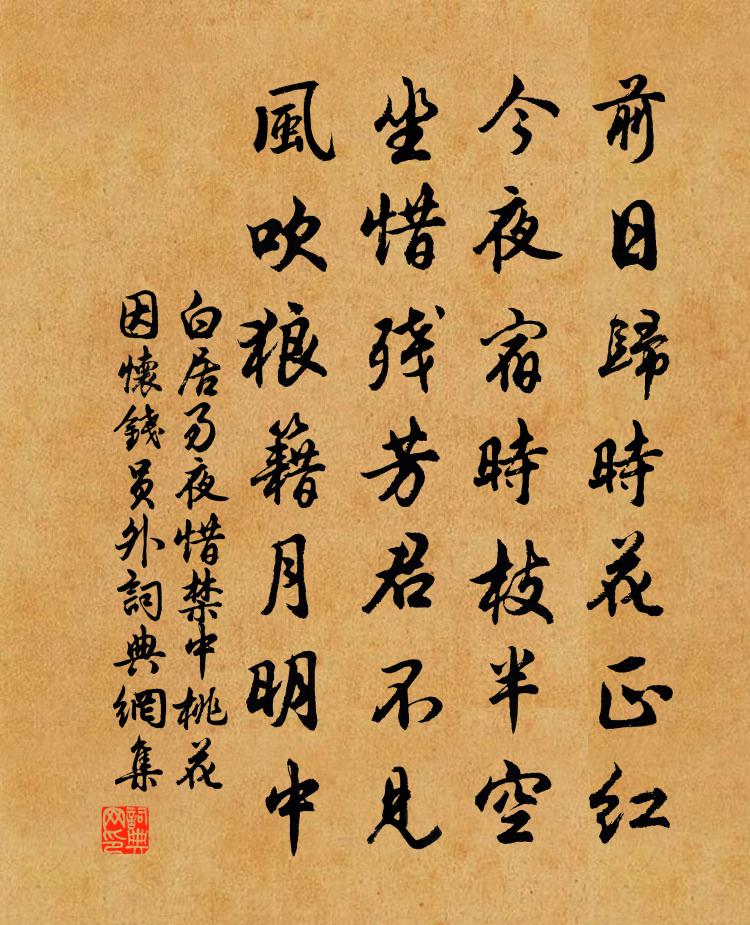 前日歸時花正紅
今夜宿時枝半空
坐惜残芳君不見
風吹狼籍月明中
白居易夜惜禁中桃花
因懷錢員外詞典網集
詞典网印